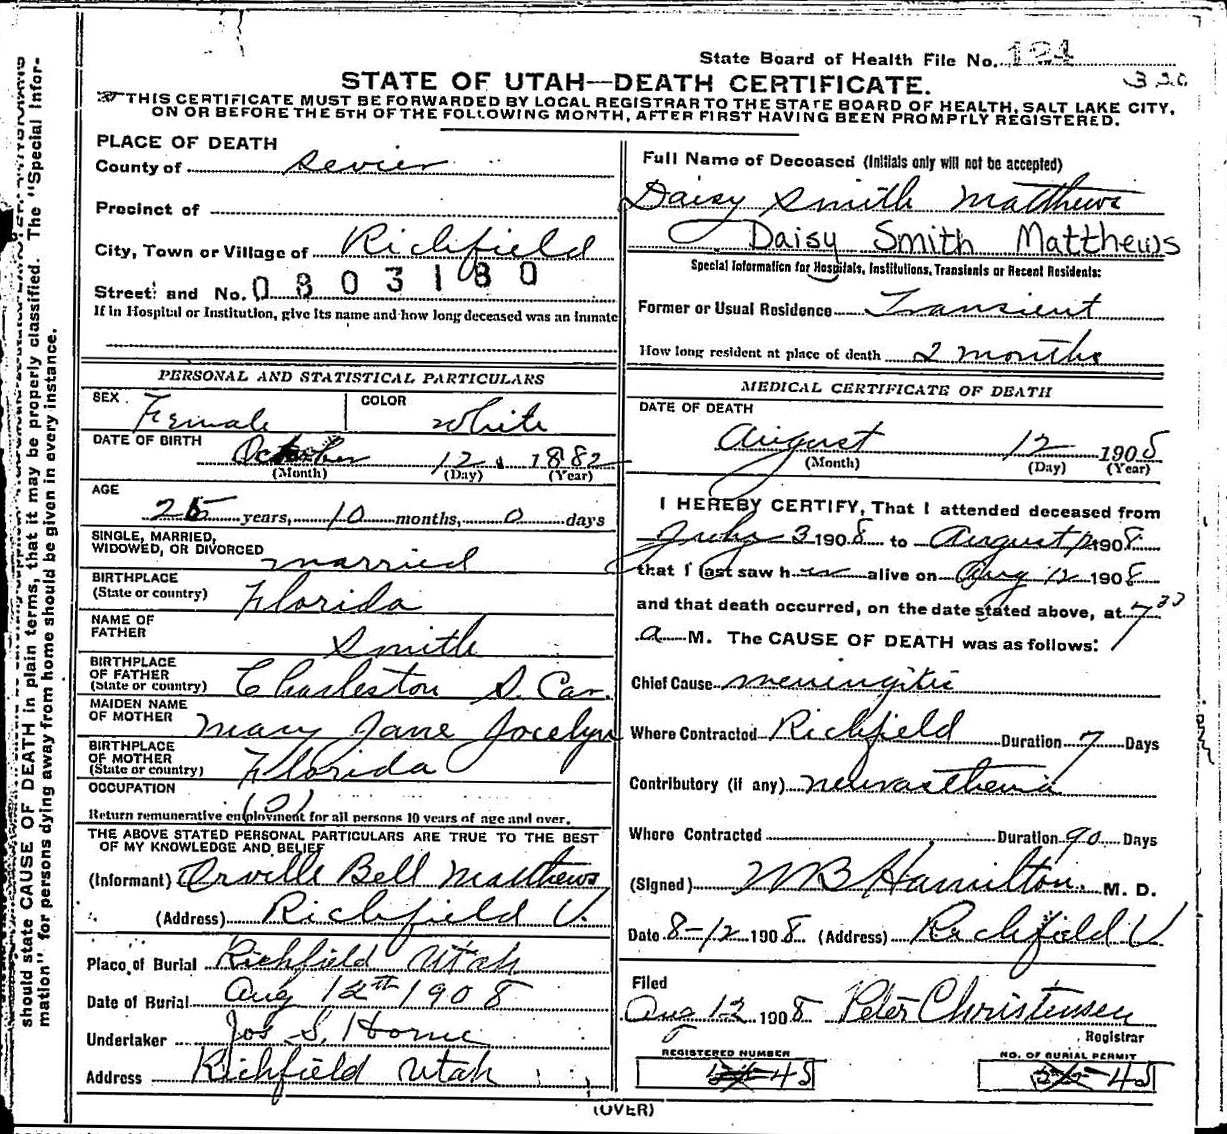 State Board of Health File No. 124
320
STATE OF UTAH—DEATH CERTIFICATE.
THIS CERTIFICATE MUST BE FORWARDED BY LOCAL REGISTRAR TO THE STATE BOARD OF HEALTH, SALT LAKE CITY,
ON OR BEFORE THE 5TH OF THE FOLLOWING MONTH, AFTER FIRST HAVING BEEN PROMPTLY REGISTERED.
should state CAUSE OF DEATH in plain terms, that it may be properly classified. The "Special Infor-
mation" for persons dying away from home should be given in every instance.
PLACE OF DEATH
County of Sevier
Precinct of
City, Town or Village of Richfield
Street and No. 0803180
If in Hospital or Institution, give its name and how long deceased was an inmate
PERSONAL AND STATISTICAL PARTICULARS
SEX Female COLOR White
DATE OF BIRTH October 12 1882
(Month) (Day) (Year)
AGE
25 years, 10 months, 0 days
SINGLE, MARRIED,
WIDOWED, OR DIVORCED married
BIRTHPLACE
(State or country) Florida
NAME OF
FATHER Smith
BIRTHPLACE
OF FATHER
(State or country) Charleston S. Car.
MAIDEN NAME
OF MOTHER Mary Jane Jocelyn
BIRTHPLACE
OF MOTHER
(State or country) Florida
OCCUPATION
Return remunerative employment for all persons 10 years of age and over.
THE ABOVE STATED PERSONAL PARTICULARS ARE TRUE TO THE BEST
OF MY KNOWLEDGE AND BELIEF
(Informant) Orville Bell Matthews
(Address) Richfield U.
Place of Burial Richfield Utah
Date of Burial Aug 12th 1908
Undertaker Jos S. Horne
Address Richfield Utah
Full Name of Deceased (Initials only will not be accepted)
Daisy Smith Matthews
Daisy Smith Matthews
Special Information for Hospitals, Institutions, Transients or Recent Residents:
Former or Usual Residence Transient
How long resident at place of death 2 months
MEDICAL CERTIFICATE OF DEATH
DATE OF DEATH
August 12 1908
(Month) (Day) (Year)
I HEREBY CERTIFY, That I attended deceased from
July 3 1908 to August 12 1908
that I last saw her alive on Aug 12 1908
and that death occurred, on the date stated above, at 7 33
a M. The CAUSE OF DEATH was as follows:
Chief Cause meningitis
Where Contracted Richfield Duration 7 Days
Contributory (if any) neurasthenia
Where Contracted Duration 90 Days
(Signed) W B Hamilton M. D.
Date 8-12 1908 (Address) Richfield U
Filed
Aug 12 1908 Peter Christensen
Registrar
REGISTERED NUMBER
45
NO. OF BURIAL PERMIT
45
(OVER)